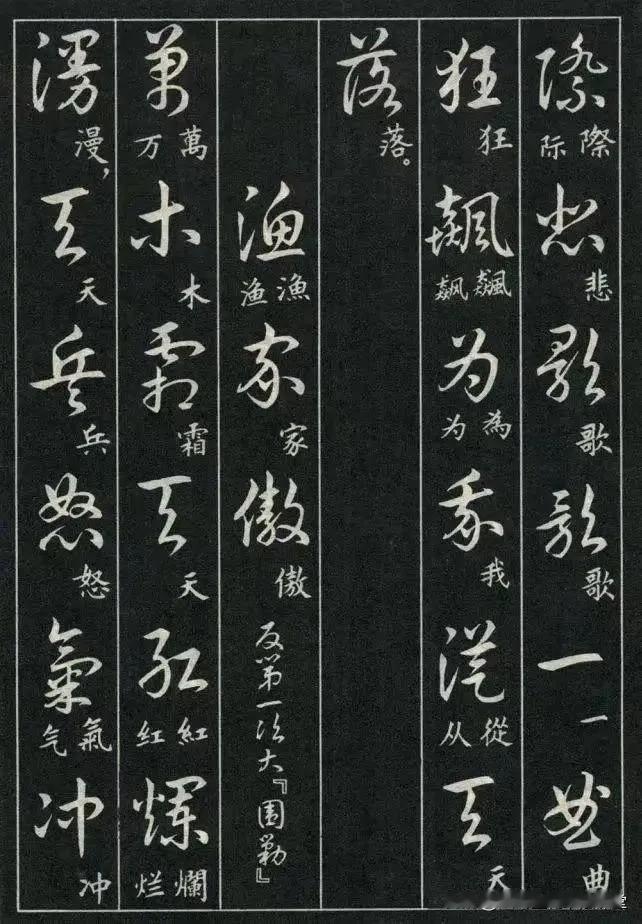 際 際际 悲 悲 歌 歌 歌 歌 一 一 曲 曲
狂 狂 飆 飆飙 为 為为 我 我 從 從从 天 天
落 落。
漁 漁渔 家 家 傲 傲 反第一次大『围剿』
萬 萬万 木 木 霜 霜 天 天 紅 紅红 爛 爛烂
漫 漫， 天 天 兵 兵 怒 怒 氣 氣气 冲 冲